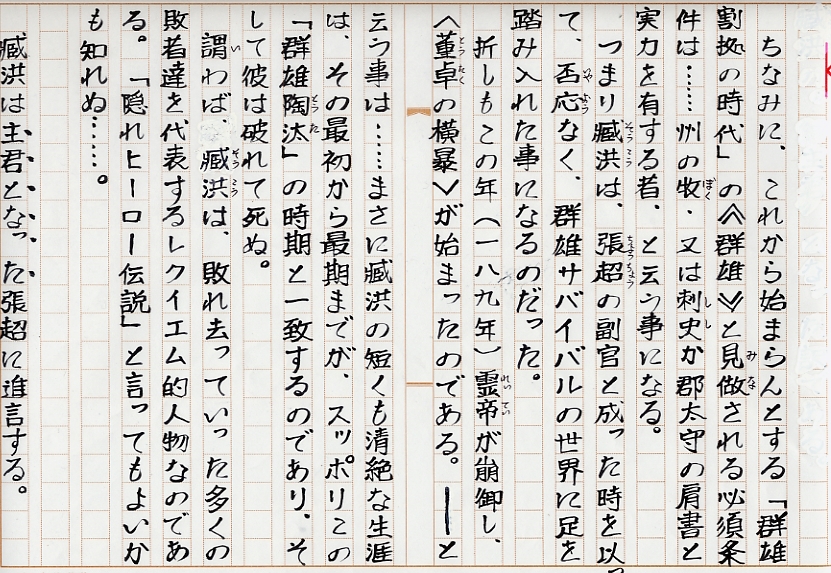 ちなみに、これから始まらんとする「群雄
割拠の時代」の≪群雄≫と見做される必須条
件は……州の牧、又は刺史か郡太守の肩書と
実力を有する者、と云う事になる。
つまり臧洪は、張超の副官と成った時を以っ
て、否応なく、群雄サバイバルの世界に足を
踏み入れた事になるのだった。
折しもこの年（一八九年）霊帝が崩御し、
＜董卓の横暴＞が始まったのである。――と
云う事は……まさに臧洪の短くも清絶な生涯
は、その最初から最期までが、スッポリこの
「群雄陶汰」の時期と一致するのであり、そ
して彼は破れて死ぬ。
謂わば、臧洪は、敗れ去っていった多くの
敗者達を代表するレクイエム的人物なのであ
る。「隠れヒーロー伝説」と言ってもよいか
も知れぬ……。
臧洪は主君となった張超に進言する。